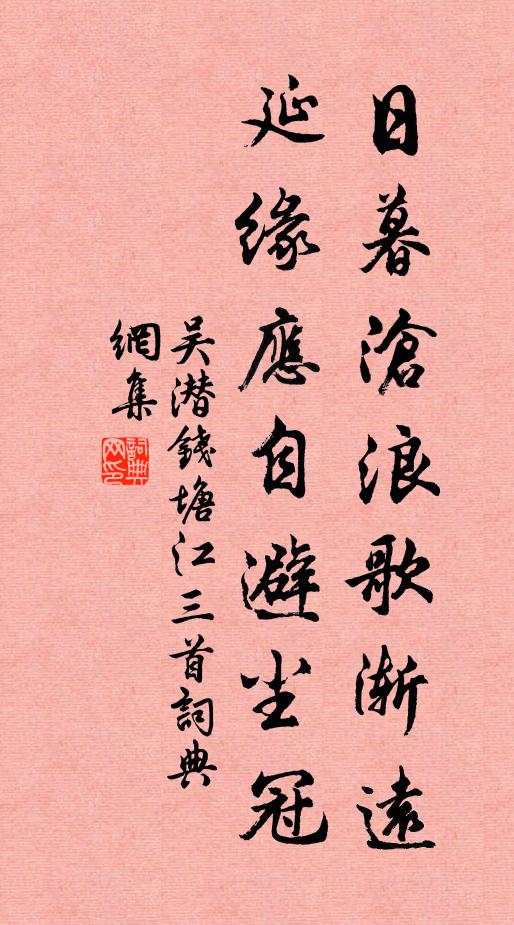 日暮滄浪歌漸遠
延緣應自避尘冠
吴潛錢塘江三首詞典
網集
詞典網印